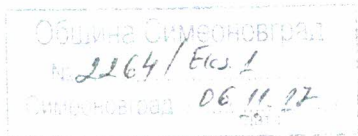 Община Симеоновград
№ 2264/Екз.1
Симеоновград 06.11.17